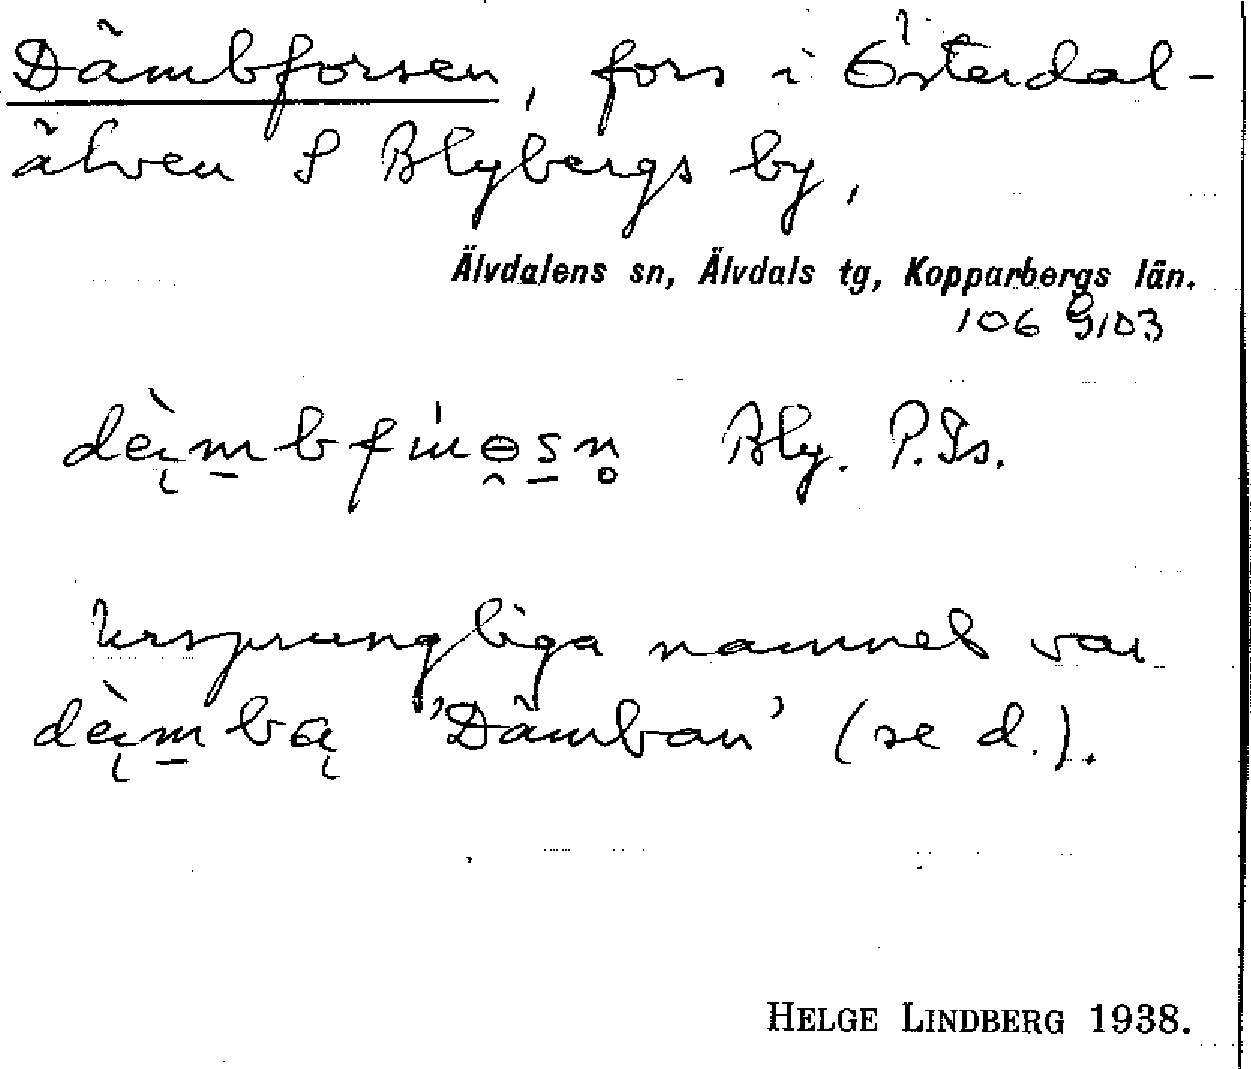 Dämbforsen, fors i Österdal-
älven S Blybergs by,
Älvdalens sn, Älvdals tg, Kopparbergs län.
106 G103
Bly. P.Is.
Ursprungliga namnet var
'Dämban' (se d.).
HELGE LINDBERG 1938.